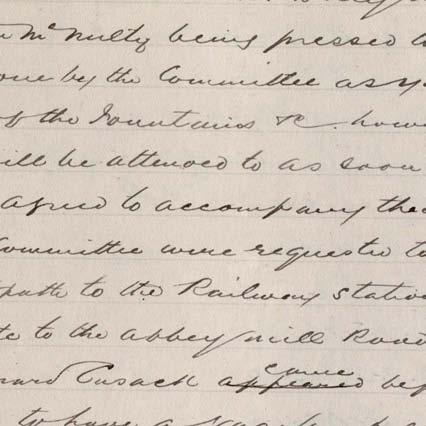 McNulty being pressed
one by the Committee as
of the Fountains &c. how
ill be attended to as soon
agreed to accompany the
Committee were requested to
path to the Railway Statio
te to the Abbey/mill Road
ward Cusack appeared came bef
to have a